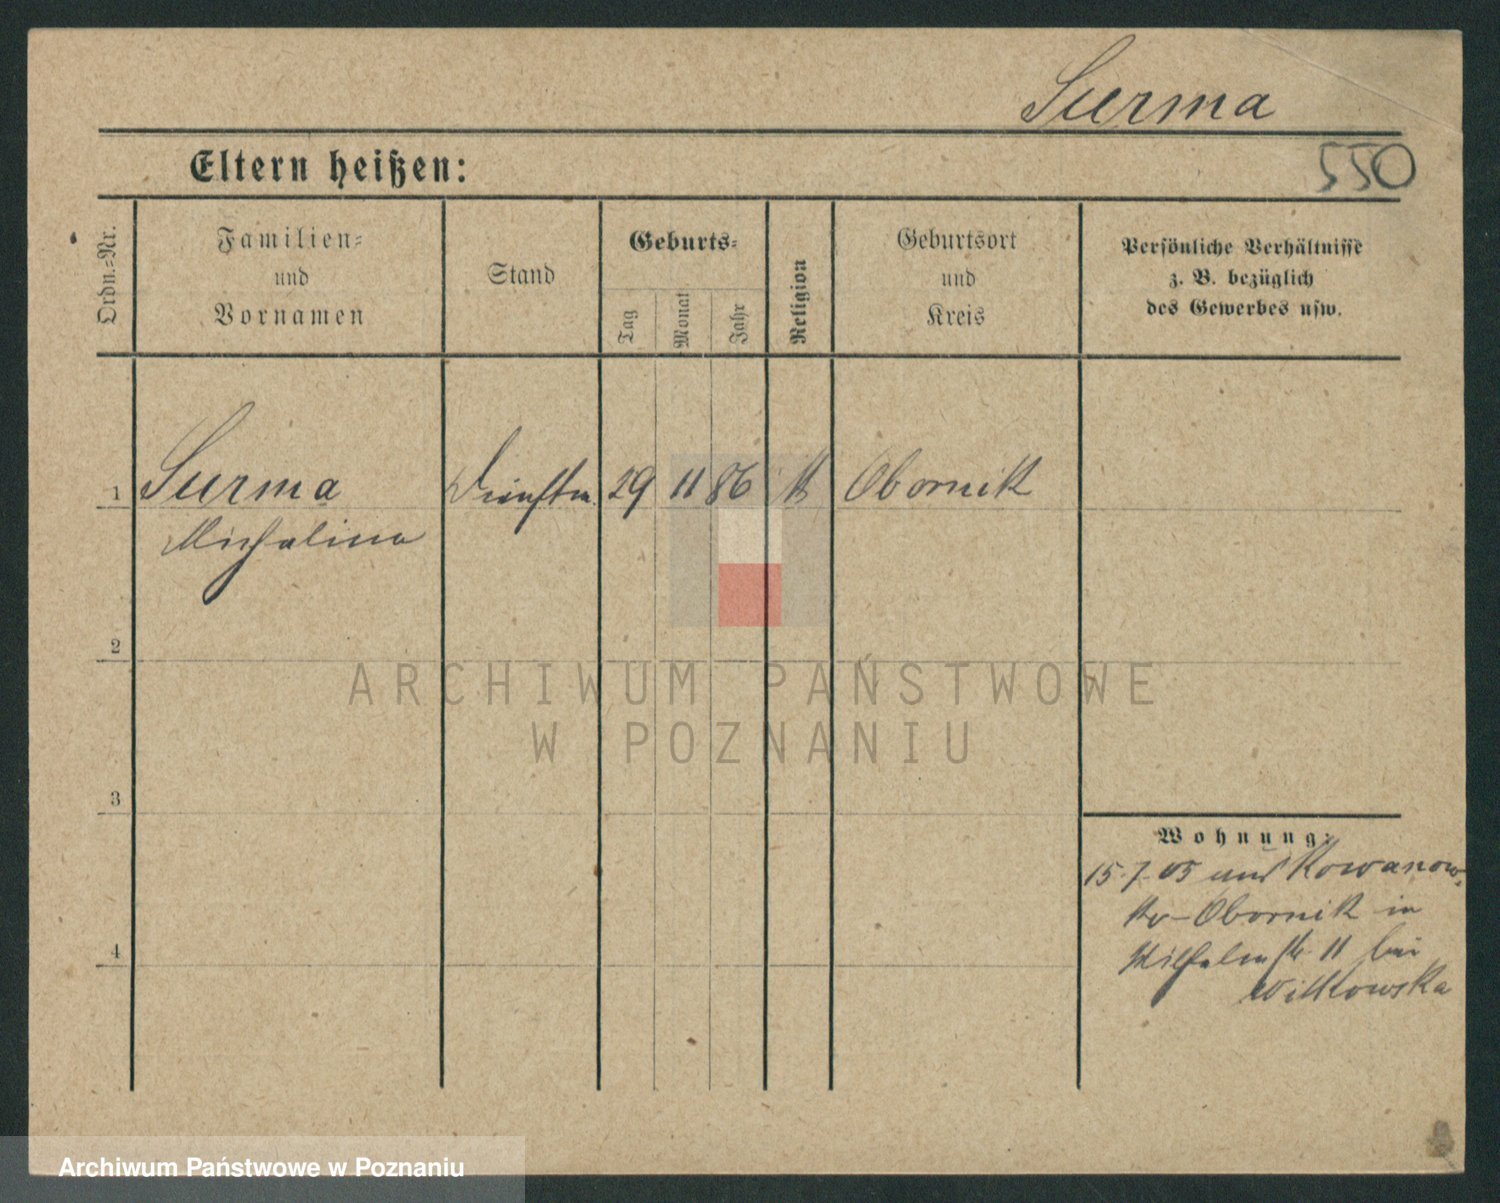 Surma
Eltern heißen:
550
Ordn.-Nr.
Familien-
und
Vornamen
Stand
Geburts-
Tag
Monat
Jahr
Religion
Geburtsort
und
Kreis
Persönliche Verhältnisse
z. B. bezüglich
des Gewerbes usw.
1 Surma Dienstm. 29 11 86 k Obornik
Michalina
2
3
4
Wohnung:
15.7.05 aus Kowanow-
ko-Obornik in
Wilhelmstr. 11 bei
Witkowska
ARCHIWUM PAŃSTWOWE
W POZNANIU
Archiwum Państwowe w Poznaniu